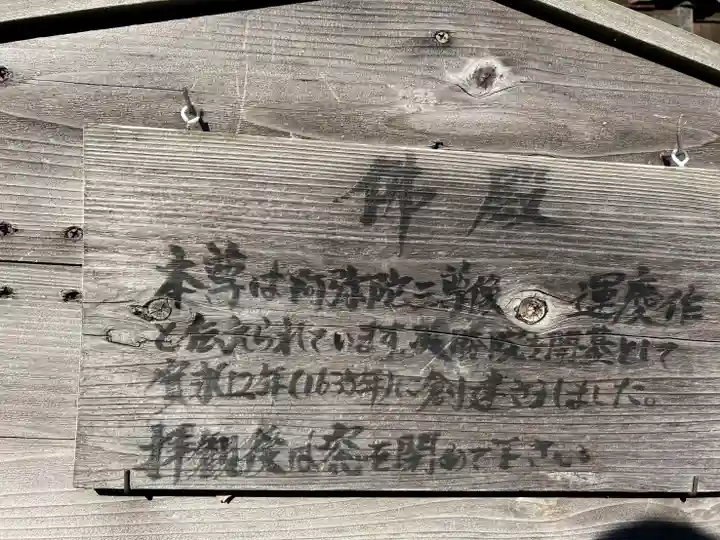 佛殿
本尊は阿弥陀三尊像 運慶作
と伝えられています。英勝院を開基として
寛永12年(1635年)に創建されました。
拝観後は窓を閉めて下さい